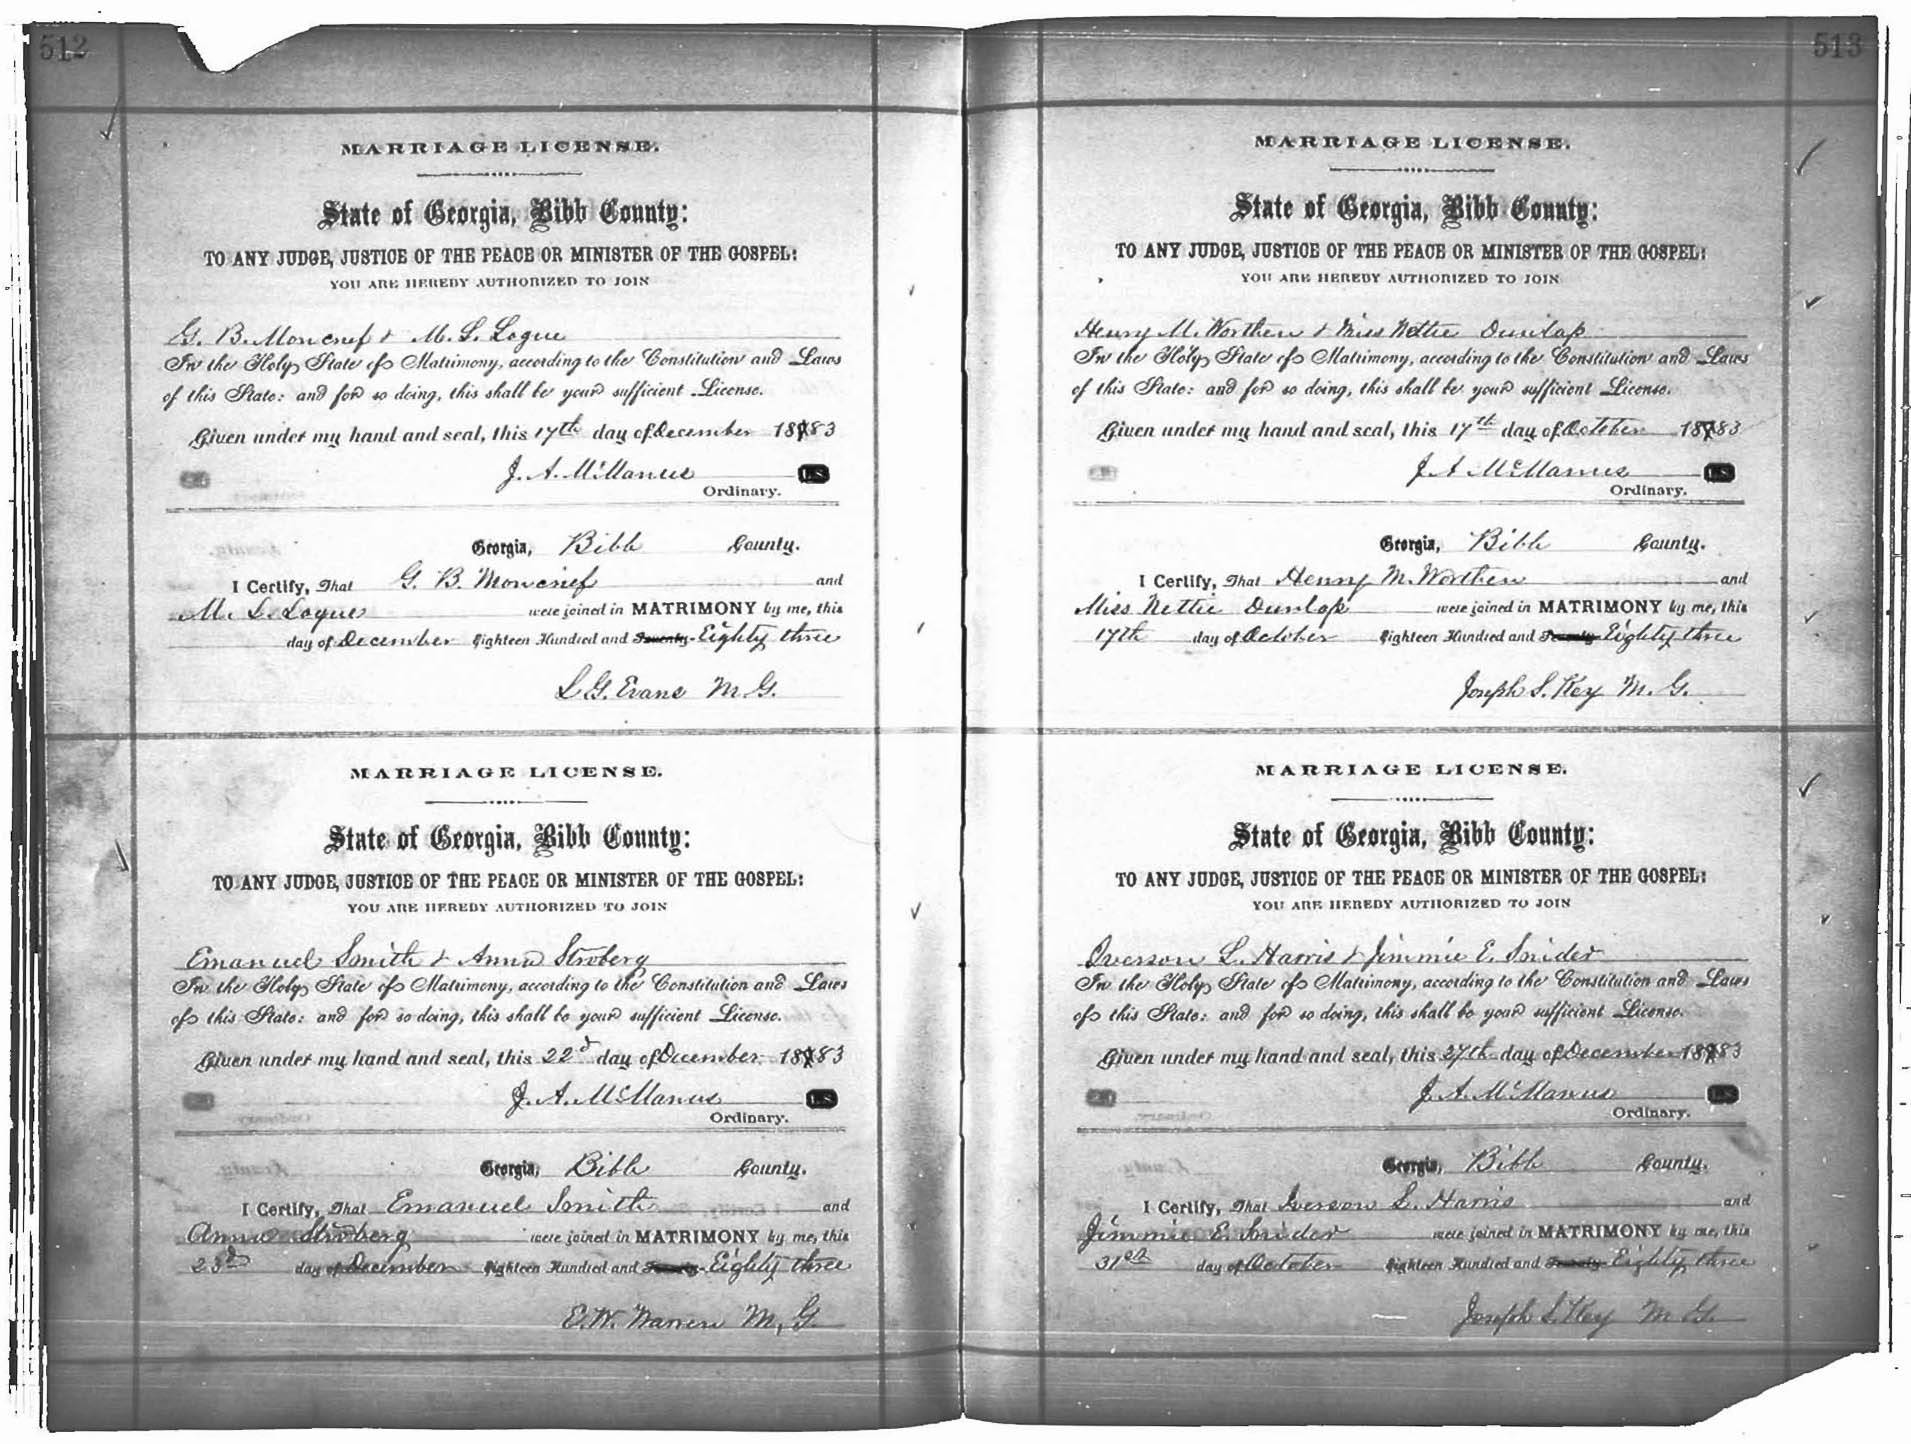 512
MARRIAGE LICENSE.
State of Georgia, Bibb County:
TO ANY JUDGE, JUSTICE OF THE PEACE OR MINISTER OF THE GOSPEL:
YOU ARE HEREBY AUTHORIZED TO JOIN
G. B. Moncrief & M. L. Logue
In the Holy State of Matrimony, according to the Constitution and Laws
of this State: and for so doing, this shall be your sufficient License.
Given under my hand and seal, this 17th day of December 18783
J. A. McManus L.S.
Ordinary.
Georgia, Bibb County.
I Certify, That G. B. Moncrief and
M. L. Logue were joined in MATRIMONY by me, this
day of December Eighteen Hundred and Seventy- Eighty three
L G. Evans M. G.
MARRIAGE LICENSE.
State of Georgia, Bibb County:
TO ANY JUDGE, JUSTICE OF THE PEACE OR MINISTER OF THE GOSPEL:
YOU ARE HEREBY AUTHORIZED TO JOIN
Emanuel Smith & Anna Stroberg
In the Holy State of Matrimony, according to the Constitution and Laws
of this State: and for so doing, this shall be your sufficient License.
Given under my hand and seal, this 22d day of December 18783
J. A. McManus L.S.
Ordinary.
Georgia, Bibb County.
I Certify, That Emanuel Smith and
Anna Stroberg were joined in MATRIMONY by me, this
23d day of December Eighteen Hundred and Seventy- Eighty three
E. W. Warren M, G
513
MARRIAGE LICENSE.
State of Georgia, Bibb County:
TO ANY JUDGE, JUSTICE OF THE PEACE OR MINISTER OF THE GOSPEL:
YOU ARE HEREBY AUTHORIZED TO JOIN
Henry M. Worthen & Miss Nettie Dunlap
In the Holy State of Matrimony, according to the Constitution and Laws
of this State: and for so doing, this shall be your sufficient License.
Given under my hand and seal, this 17th day of October 18783
J A McManus L.S.
Ordinary.
Georgia, Bibb County.
I Certify, That Henry M. Worthen and
Miss Nettie Dunlap were joined in MATRIMONY by me, this
17th day of October Eighteen Hundred and Seventy- Eighty three
Joseph S. Key M. G.
MARRIAGE LICENSE.
State of Georgia, Bibb County:
TO ANY JUDGE, JUSTICE OF THE PEACE OR MINISTER OF THE GOSPEL:
YOU ARE HEREBY AUTHORIZED TO JOIN
Iverson L. Harris & Jimmie E. Snider
In the Holy State of Matrimony, according to the Constitution and Laws
of this State: and for so doing, this shall be your sufficient License.
Given under my hand and seal, this 27th day of December 18783
J. A. McManus L.S.
Ordinary.
Georgia, Bibb County.
I Certify, That Iverson L. Harris and
Jimmie E. Snider were joined in MATRIMONY by me, this
31st day of October Eighteen Hundred and Seventy- Eighty three
Joseph S. Key M G.